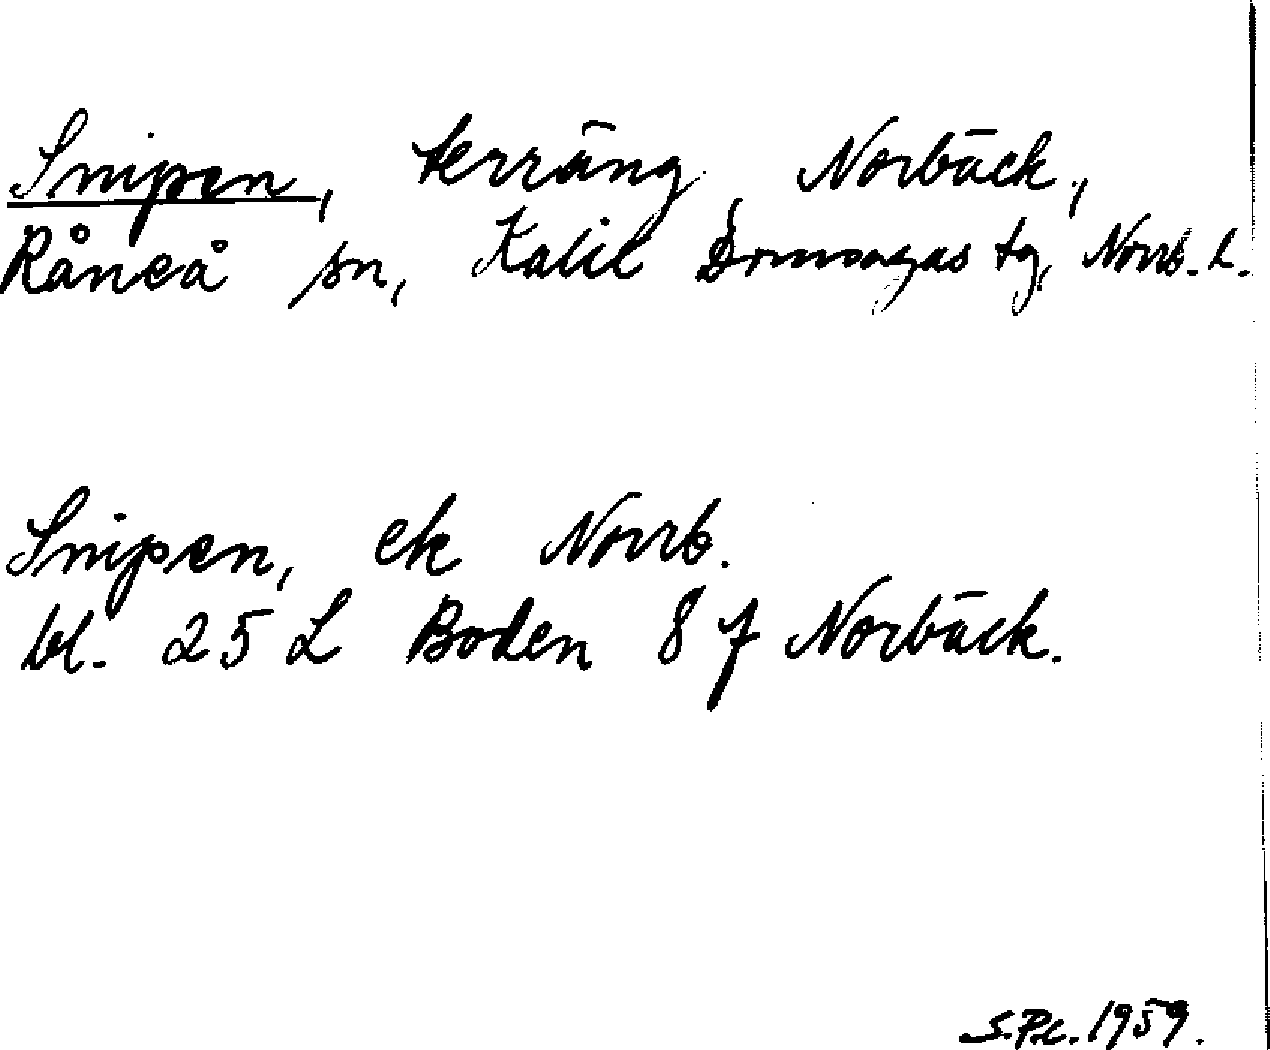 Snipen, terräng, Norbäck,
Råneå sn, Kalix Domsagas tg, Norrb. L.
Snipen, ek Norrb.
bl. 25 L Boden 8 f Norbäck.
1959.